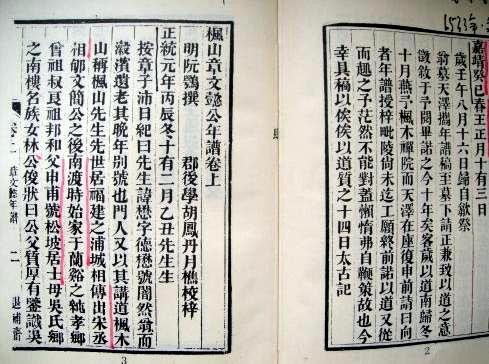 1533年
嘉靖癸巳春王月十有三日
歲壬午八月十六日歸自歙祭
翁墓天澤攜年譜稿至墓下請正兼致以道之意
徵敘于予閱畢諾之今十年矣客歲以道南歸冬
十月燕予楓木禪院而天澤在座復申前請曰向
者年譜授梓毗陵尚未迄工願終前諾以道又從
而趣之予茫然不能對蓋懶惰弗自鞭策故也今
幸具稿以俟俟以道質之十四日太古記
2
楓山章文懿公年譜卷上
明阮鶚撰 郡後學胡鳳丹月樵校梓
正統元年丙辰冬十有二月乙丑先生生
按章子沛日紀曰先生諱懋字德懋號闇然翁而
瀫濱遺老其晚年别號也門人又以其講道楓木
山稱楓山先生先世居福建之浦城相傳出宋丞
祖郇文簡公之後南渡時始家于蘭谿之純孝鄉
曾祖叔良祖邦和父申甫號松坡居士母吳氏鄉
之南樓名族女林公俊狀曰公父質厚有鑒識吳
章文懿年譜 二 退補齋
3